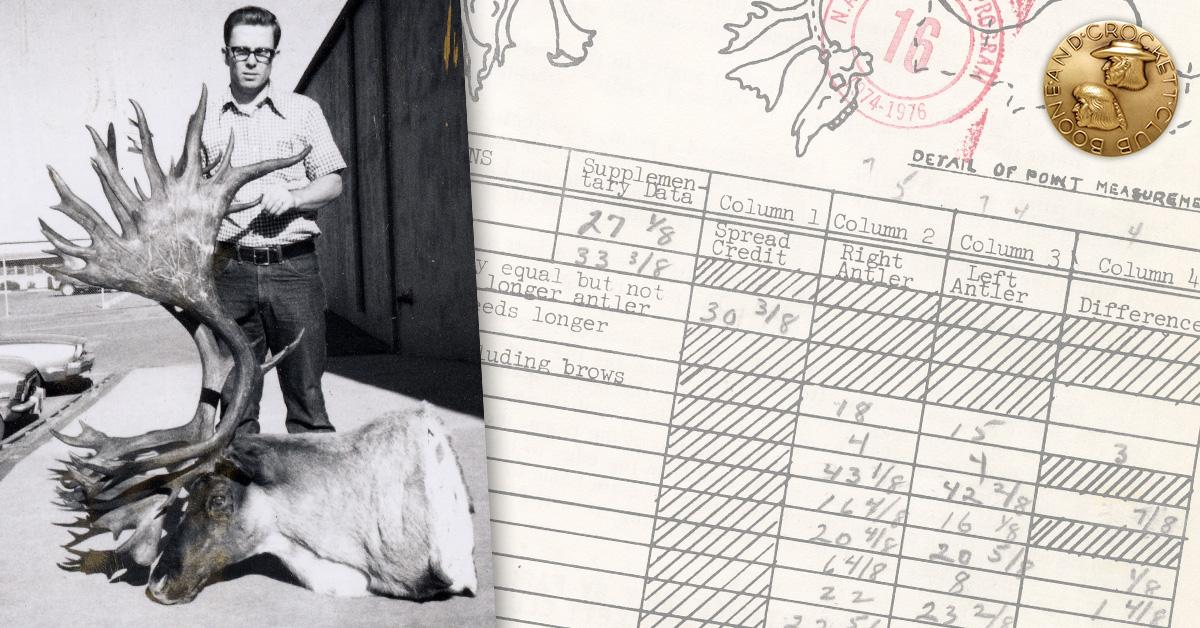 N.A.
PROGRAM
16
974-1976
BOONE·AND·CROCKETT·CLUB
DETAIL OF POINT MEASUREME
NS
Supplemen-
tary Data
Column 1
Column 2
Column 3
Column 4
27 1/8
Spread
Credit
Right
Antler
Left
Antler
Difference
33 3/8
y equal but not
longer antler
eeds longer
30 3/8
luding brows
18 15 3
4 4
43 1/8 42 2/8 7/8
16 4/8 16 1/8
20 4/8 20 5/8 1/8
6 4/8 8 1 4/8
22 23 2/8